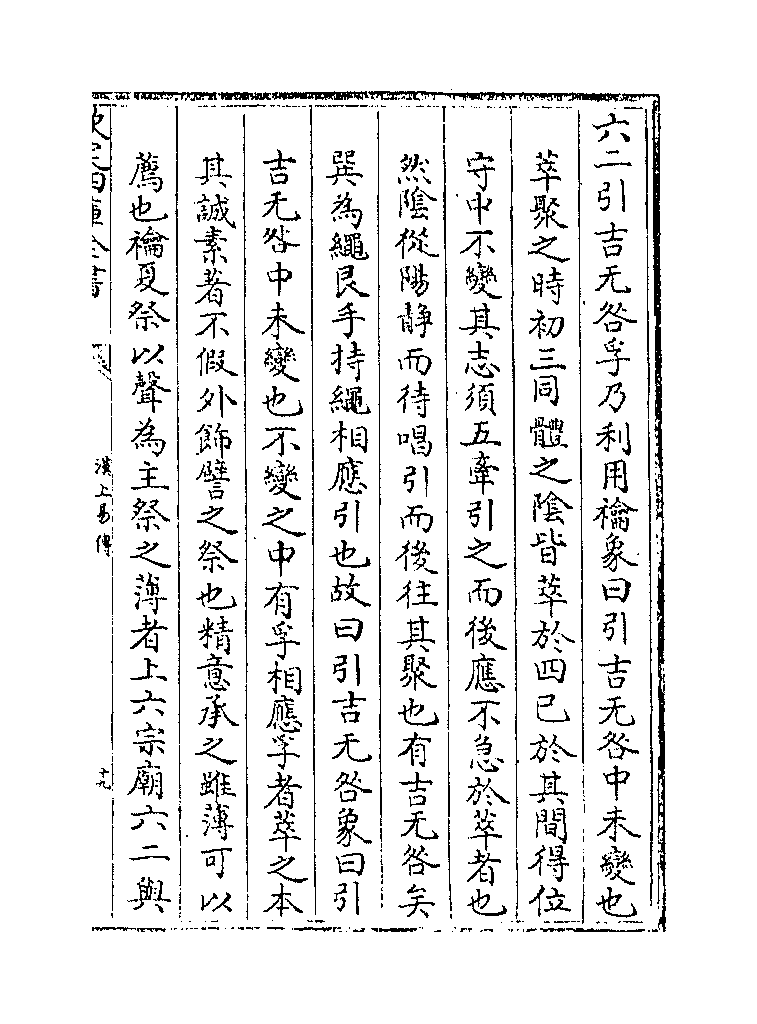 六二引吉无咎孚乃利用禴象曰引吉无咎中未變也
萃聚之時初三同體之陰皆萃於四已於其間得位
守中不變其志須五牽引之而後應不急於萃者也
然陰從陽靜而待唱引而後往其聚也有吉无咎矣
巽為繩艮手持繩相應引也故曰引吉无咎象曰引
吉无咎中未變也不變之中有孚相應孚者萃之本
其誠素著不假外飾譬之祭也精意承之雖薄可以
薦也禴夏祭以聲為主祭之薄者上六宗廟六二與
欽定四庫全書
漢上易傳
十九